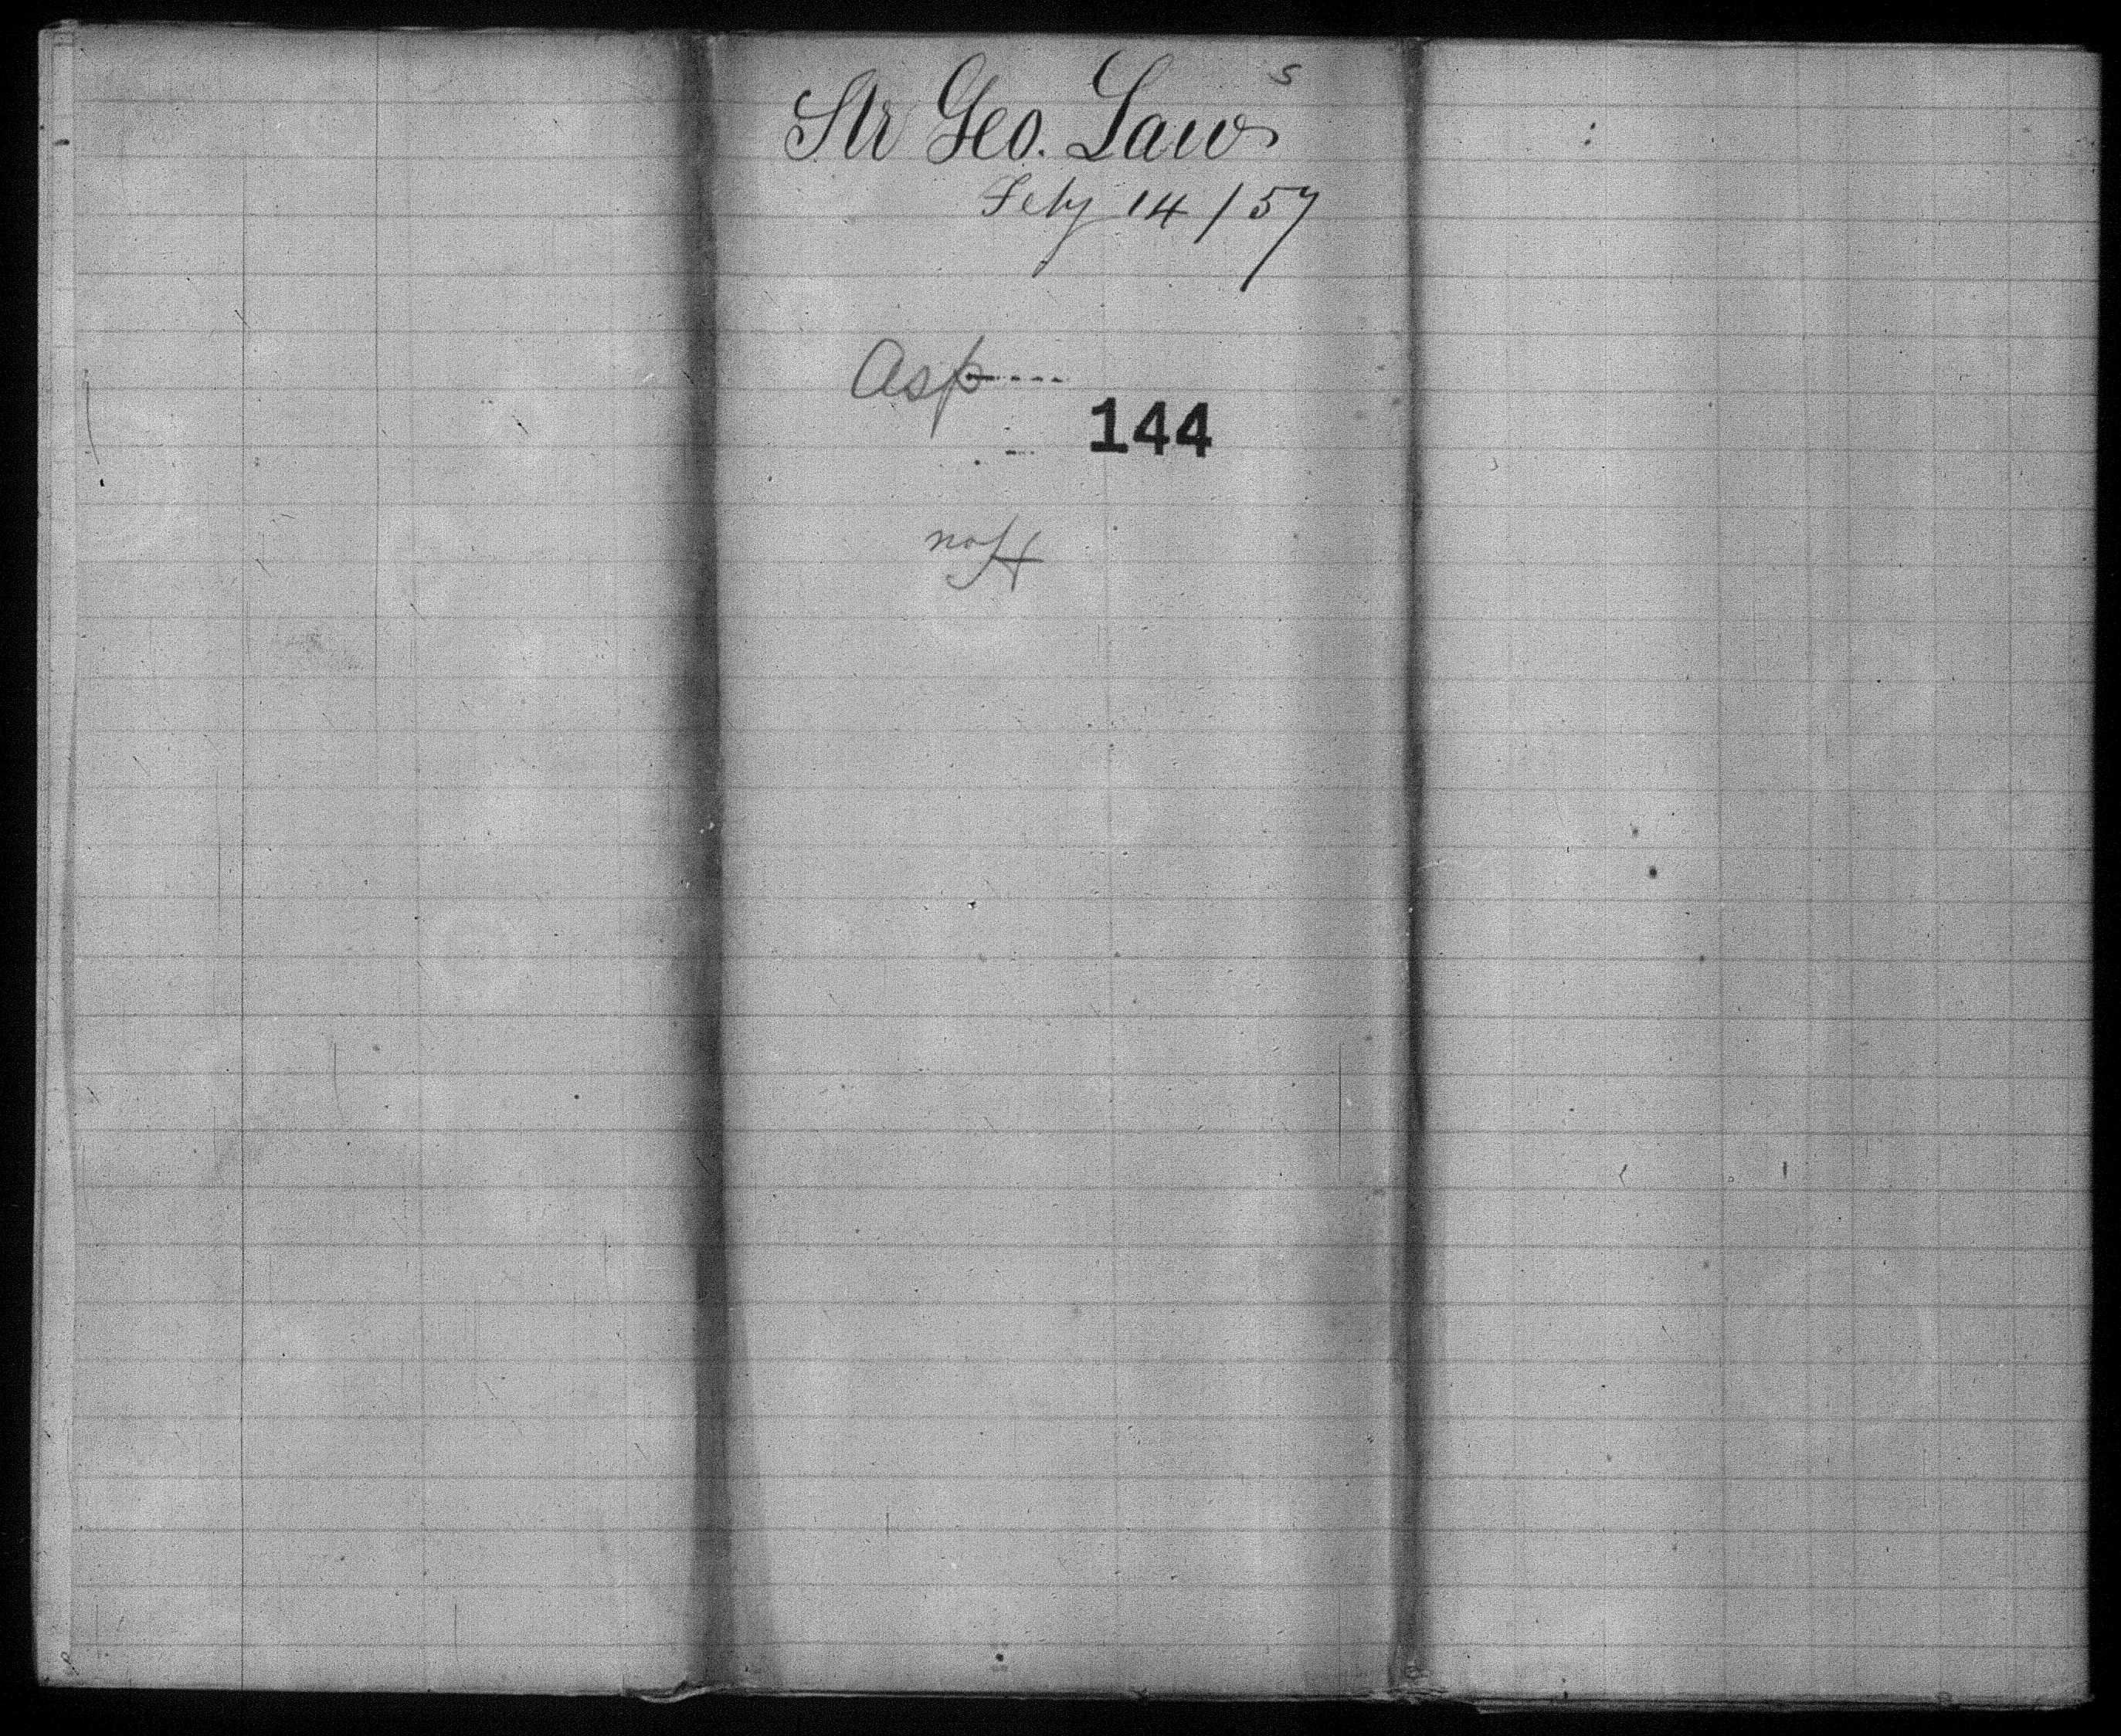 s
Str Geo. Law
Feby 14/57
Asp
144
no H